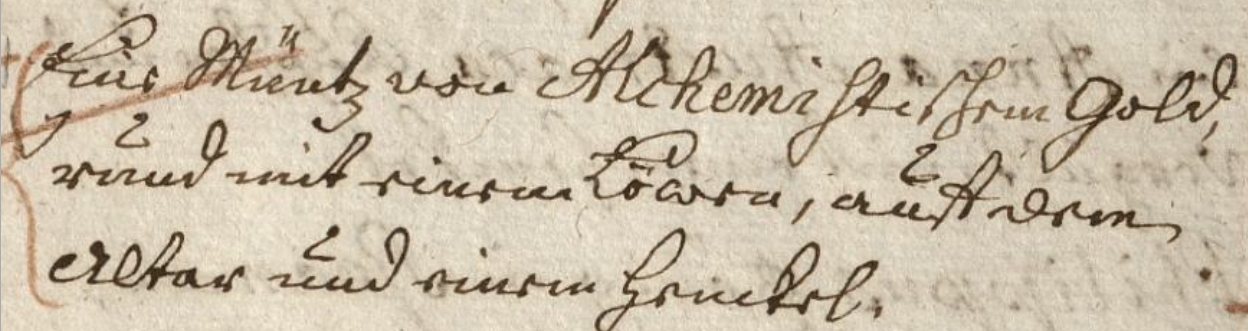 Eine Müntz von Alchemistischem Gold,
rund mit einem Löwen, auff dem
Altar und einem Henckel.